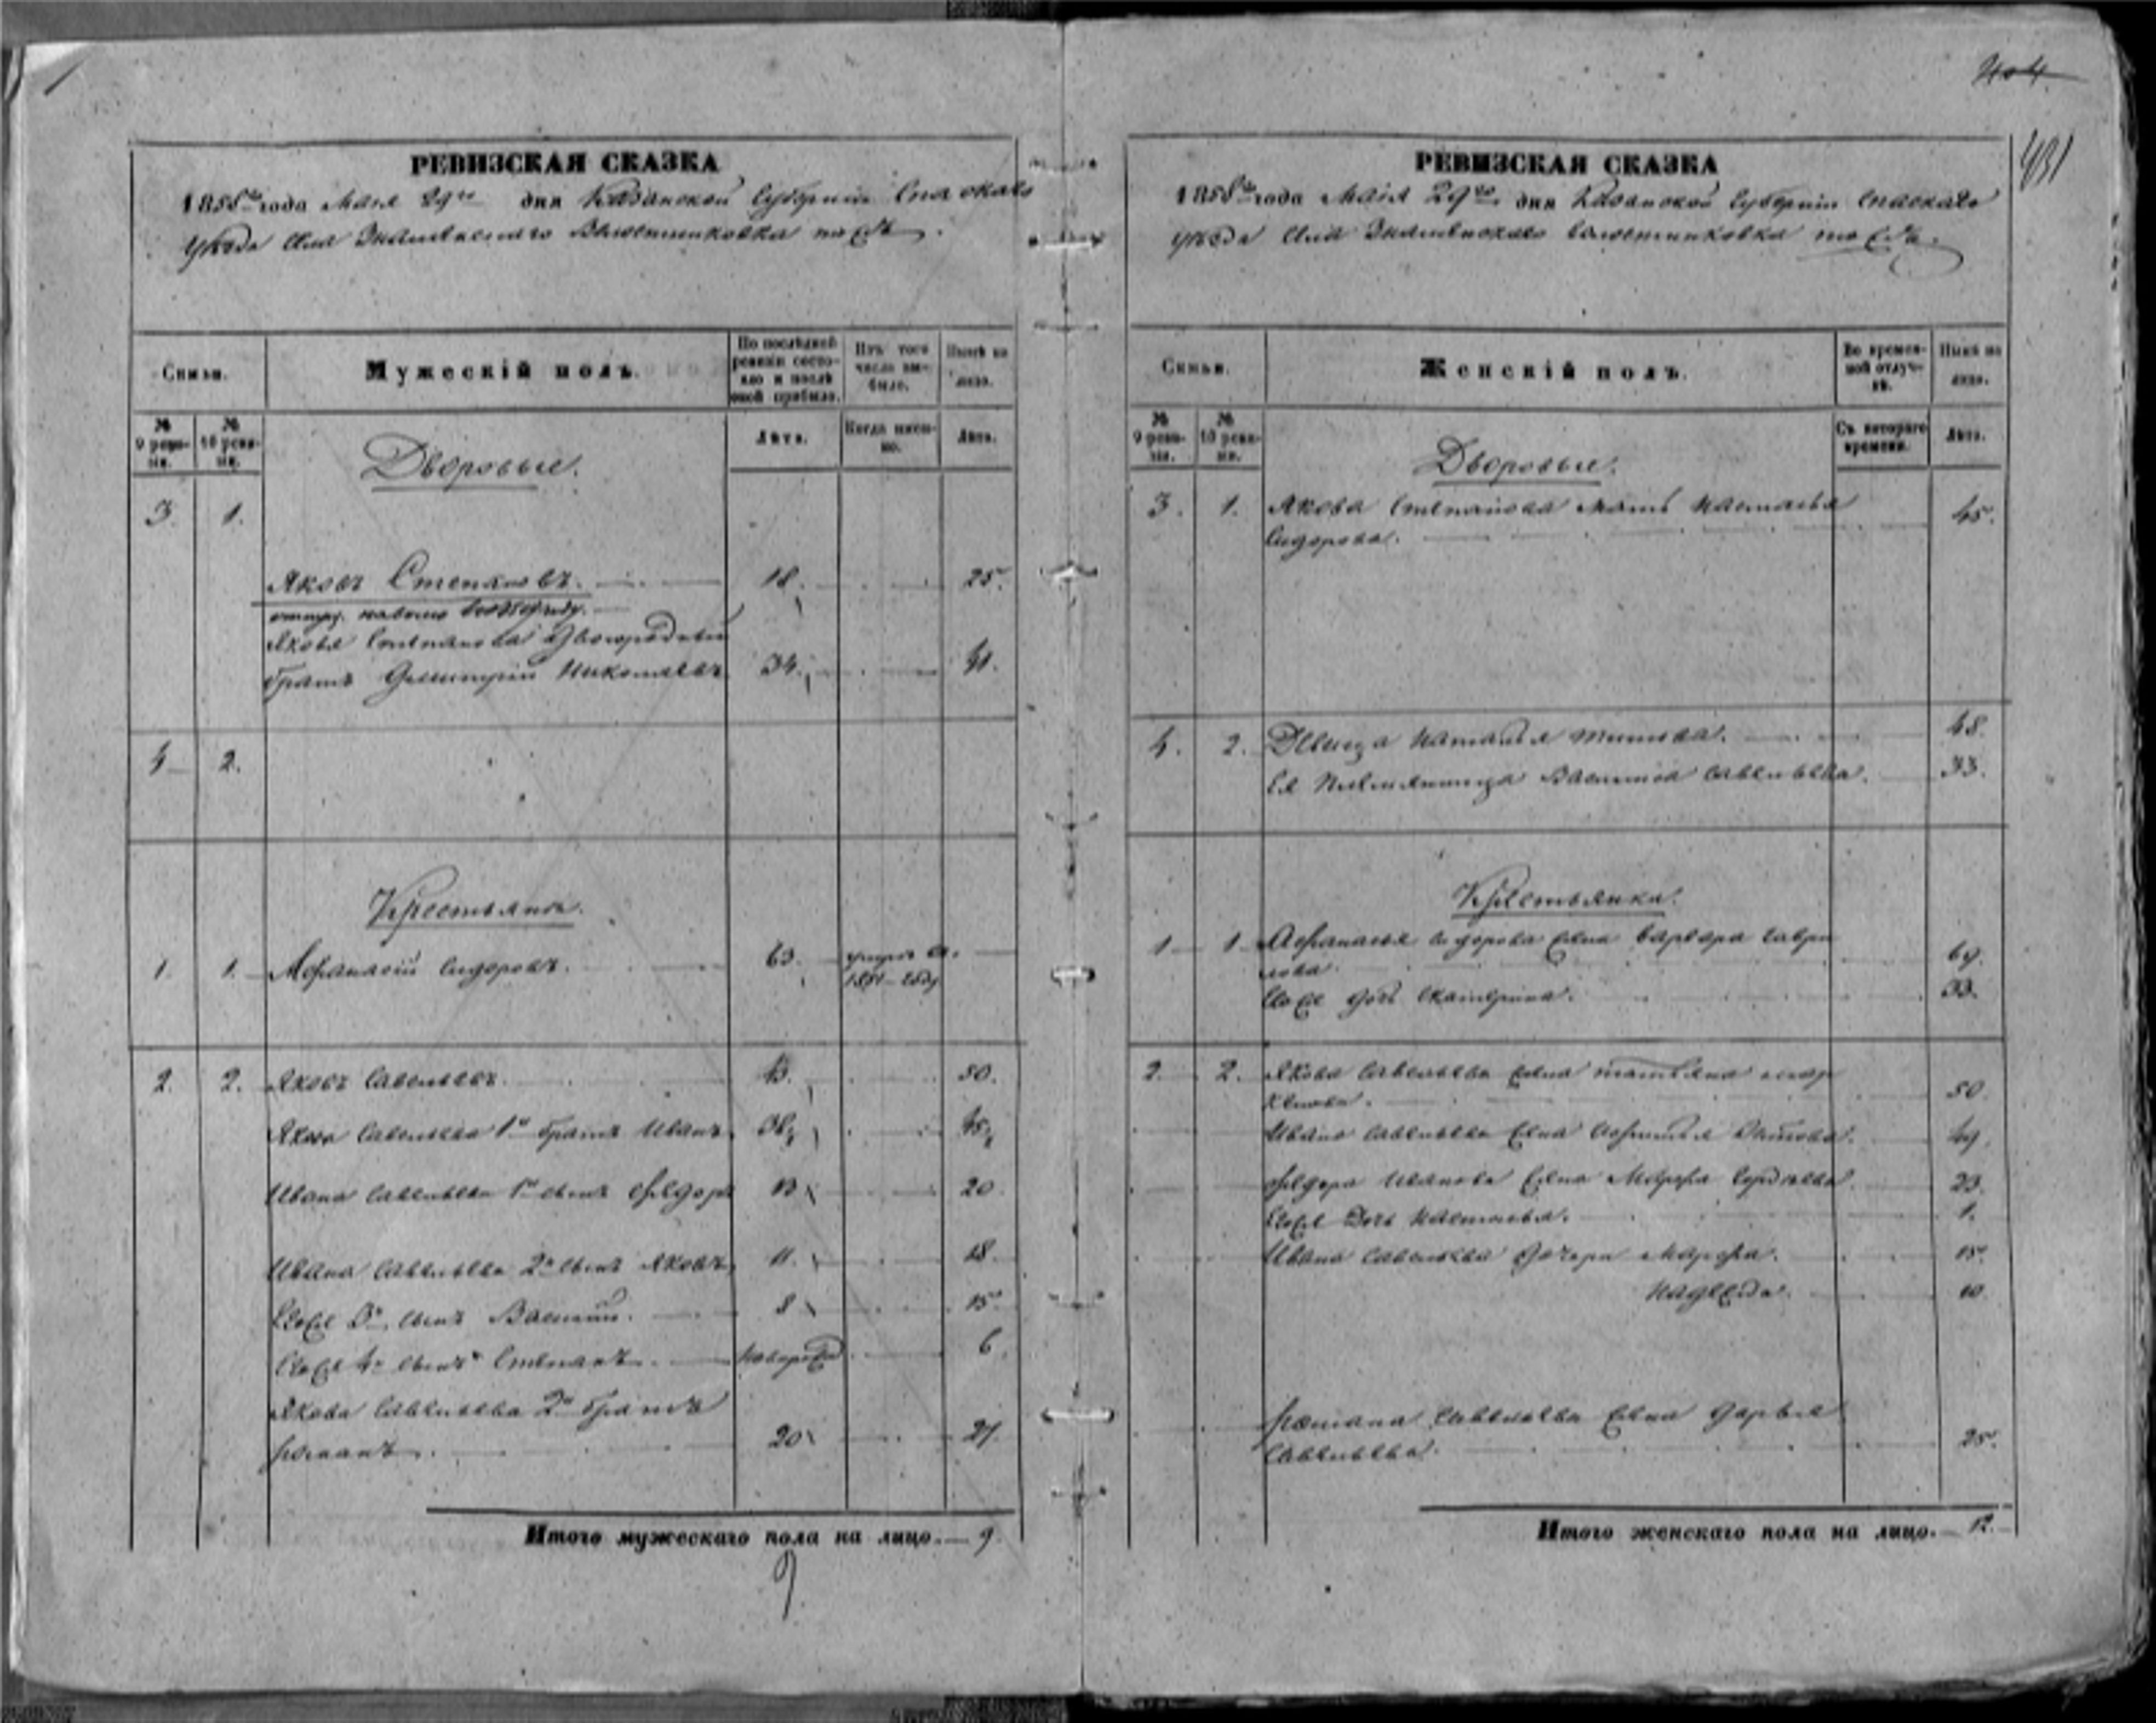 404
431
РЕВИЗСКАЯ СКАЗКА
1858го года Мая 29го дня Казанской Губернiи Спаскаго
Уѣзда Села Знаменскаго
Семьи.
Мужескiй полъ.
По послѣдней ревизiи состояло и послѣ оной прибыло.
Изъ того числа выбыло.
Нынѣ на лицо.
№ 9 ревизiи.
№ 10 ревизiи.
Лѣта.
Когда именно.
Лѣта.
Дворовые.
3. 1.
Яковъ Степановъ. 18. 25.
Якова Степанова Двоюродный
братъ Дмитрiй Николаевъ 34. 41.
4 2.
Крестьяне.
1. 1. Афанасiй Сидоровъ. 63. умеръ въ
1851 году
2. 2. Яковъ Савельевъ. 43. 50.
Якова Савельева 1й братъ Иванъ 38 45
Ивана Савельева 1й сынъ Федоръ 13 20
Ивана Савельева 2й сынъ Яковъ 11. 18.
Его же 3й сынъ Василiй. 8 15
Его же 4й сынъ Степанъ. новорожд 6.
Якова Савельева 2й братъ
Романъ. 20 27.
Итого мужескаго пола на лицо. 9.
9
РЕВИЗСКАЯ СКАЗКА
1858го года Мая 29го дня Казанской Губернiи Спаскаго
уѣзда Села Знаменскаго
Семьи.
Женскiй полъ.
Во временной отлучкѣ.
Нынѣ на лицо.
№ 9 ревизiи.
№ 10 ревизiи.
Съ котораго времени.
Лѣта.
Дворовые.
3. 1. Якова Степанова мать Настасья
Сидорова. 45.
4. 2. Девица Наталья Титова. 48.
Ея Племянница Василиса Савельева. 33.
Крестьянки.
1 1 Афанасья Сидорова жена Варвара Гаври
лова. 69.
Его же дочь Екатерина. 33.
2. 2. Якова Савельева жена Татьяна мар
келова. 50.
Ивана Савельева жена Титова. 49.
Федора Иванова жена Марфа Сергѣева. 23.
Его же дочь Настасья. 1.
Ивана Савельева дочери Марфа. 15.
Надежда. 10.
Романа Савельева жена Дарья
Савельева. 25.
Итого женскаго пола на лицо. 12.